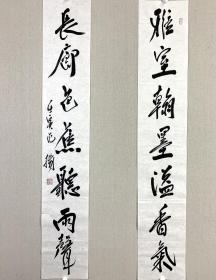 雅室翰墨溢香氣
長廊芭蕉聽雨聲
壬寅